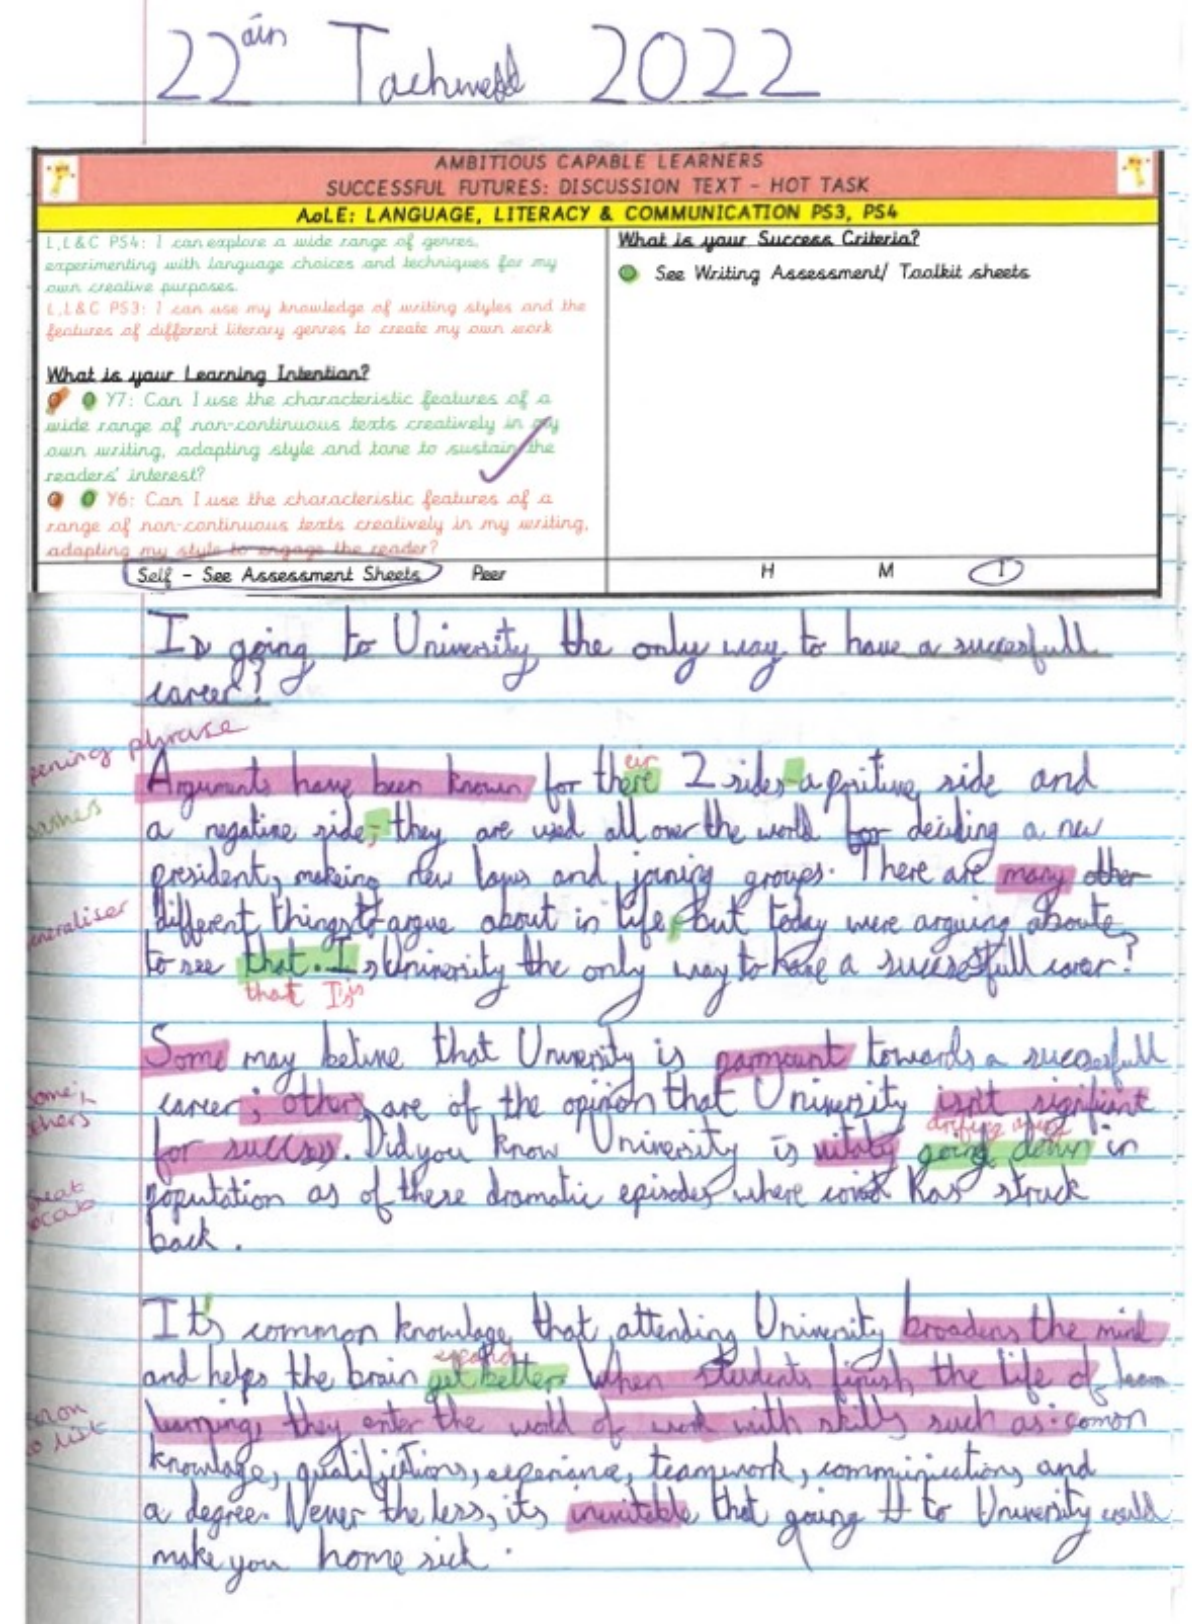 22ain Tachwedd 2022
AMBITIOUS CAPABLE LEARNERS
SUCCESSFUL FUTURES: DISCUSSION TEXT - HOT TASK
AoLE: LANGUAGE, LITERACY & COMMUNICATION PS3, PS4
L,L&C PS4: I can explore a wide range of genres,
experimenting with language choices and techniques for my
own creative purposes.
L,L&C PS3: I can use my knowledge of writing styles and the
features of different literary genres to create my own work
What is your Learning Intention?
Y7: Can I use the characteristic features of a
wide range of non-continuous texts creatively in my
own writing, adapting style and tone to sustain the
readers' interest?
Y6: Can I use the characteristic features of a
range of non-continuous texts creatively in my writing,
adapting my style to engage the reader?
What is your Success Criteria?
See Writing Assessment/ Toolkit sheets
Self - See Assessment Sheets Peer
H M I
Is going to University the only way to have a succesfull
career?
pening phrase
Arguments have been known for there 2 sides-a positive side and
eir
ashes
a negative side; they are used all over the world for deciding a new
president, making new laws and joining groups. There are many other
neraliser
different things to argue about in life, but today were arguing aboute
to see that. Is University the only way to have a succesfull career?
that Is
Some may belive that University is parmount towards a succesfull
ome;
thers
career; others are of the opinion that University isn't signifient
drifting away
for success. Did you know University is vitaly going down in
reat
ocab
population as of these dramatic episodes where covid has struck
back.
It's common knowlage that attending University broadens the mind
expand
and helps the brain get better. When students finish the life of
learning, they enter the world of work with skills such as: comon
olon
to list
knowlage, qualifictions, experiance, teamwork, comminications and
a degree. Never the less, its inevitable that going to University could
make you home sick.